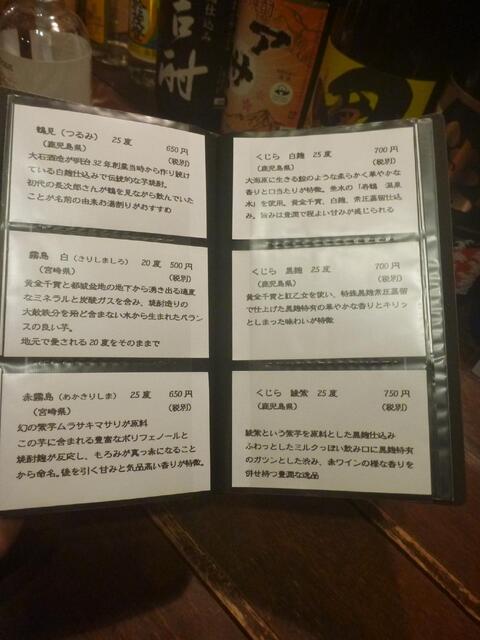 鶴見(つるみ) 25度 650円
(鹿児島県) (税別)
大石酒造が明治32年創業当時から作り続け
ている白麹仕込みで伝統的な芋焼酎。
初代の長次郎さんが鶴を見ながら飲んでいた
ことが名前の由来お湯割りがおすすめ
霧島 白(きりしましろ) 20度 500円
(宮崎県) (税別)
黄金千貫と都城盆地の地下から湧き出る適度
なミネラルと炭酸ガスを含み、焼酎造りの
大敵鉄分を殆ど含まない水から生まれたバラン
スの良い芋。
地元で愛される20度をそのままで
赤霧島(あかきりしま) 25度 650円
(宮崎県) (税別)
幻の紫芋ムラサキマサリが原料
この芋に含まれる豊富なポリフェノールと
焼酎麹が反応し、もろみが真っ赤になること
から命名。後を引く甘みと気品高い香りが特徴。
くじら 白麹 25度 700円
(鹿児島県) (税別)
大海原に生きる鯨のような柔らかく華やかな
香りと口当たりが特徴。垂水の「寿鶴 温泉
水」を使用。黄金千貫、白麹、常圧蒸留仕込
み。旨みは豊潤で程よい甘みが感じられる
くじら 黒麹 25度 700円
(鹿児島県) (税別)
黄金千貫と紅乙女を使い、特殊黒麹常圧蒸留
で仕上げた黒麹特有の華やかな香りとキリッ
としまった味わいが特徴
くじら 綾紫 25度 750円
(鹿児島県) (税別)
綾紫という紫芋を原料とした黒麹仕込み
ふわっとしたミルクっぽい飲み口に黒麹特有
のガツンとした渋み、赤ワインの様な香りを
併せ持つ豊潤な逸品